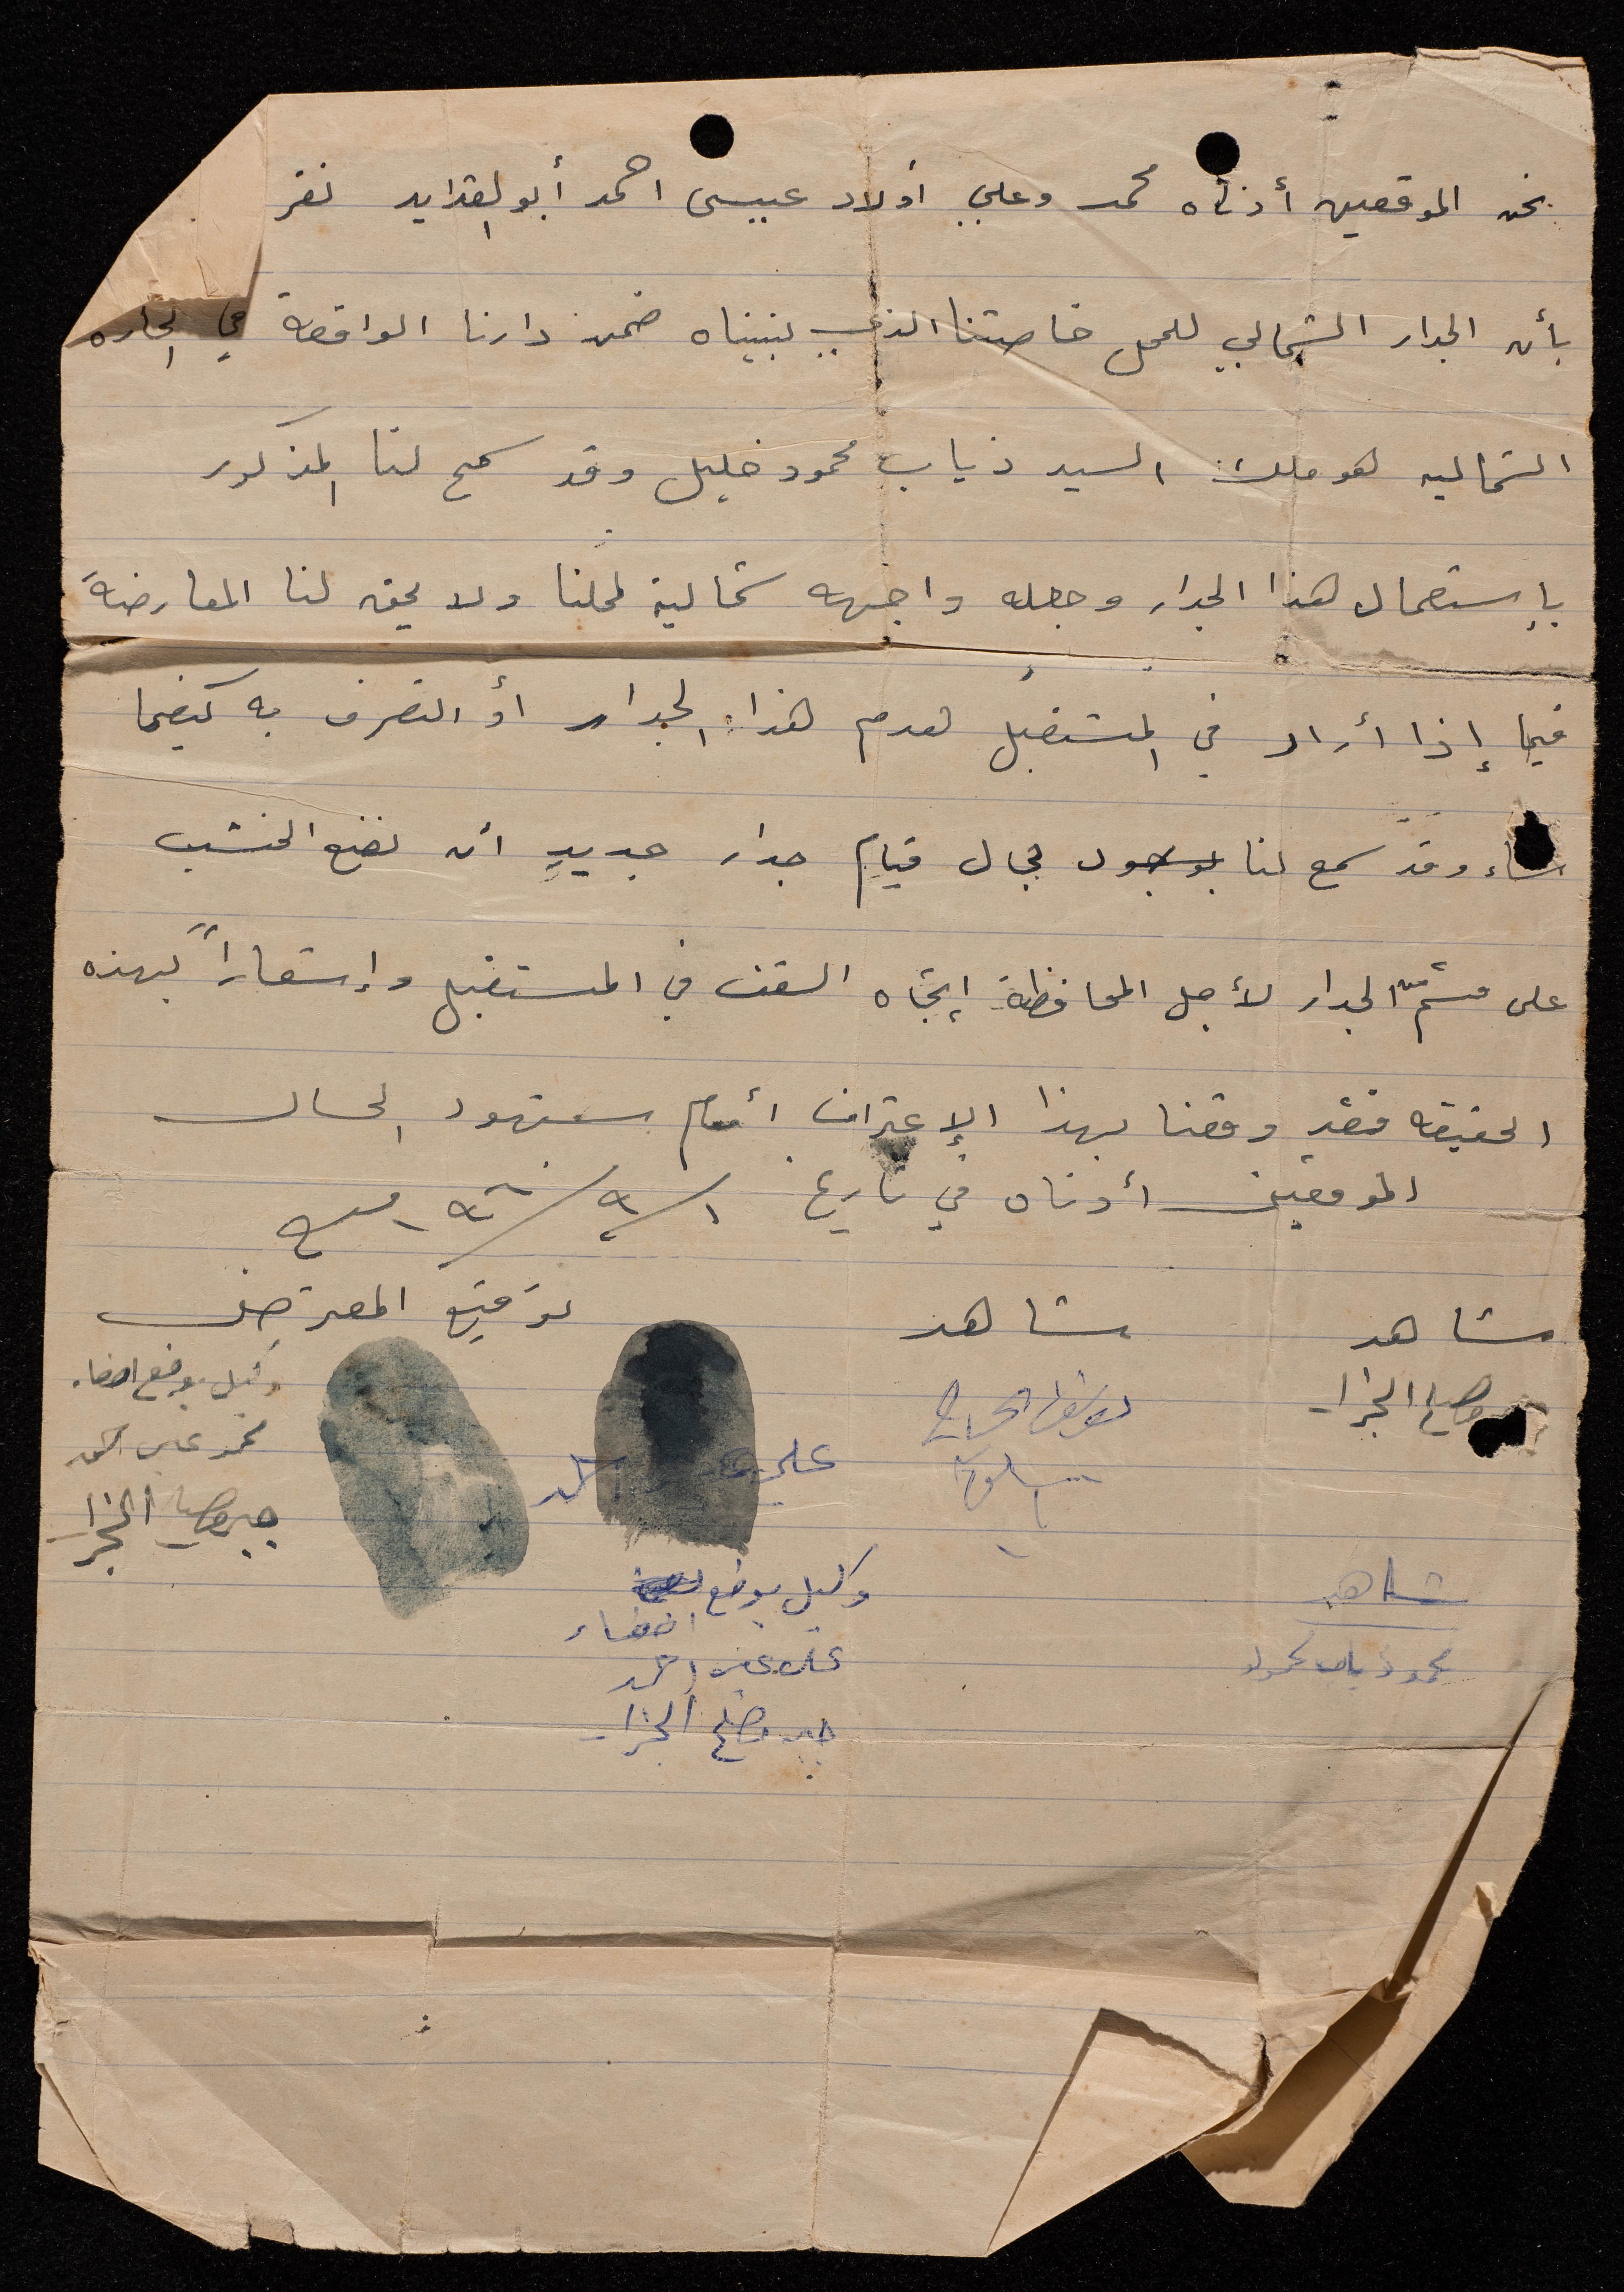 نحن الموقعين أدناه محمد وعلي أولاد عيسى احمد أبو نقر
بأن الجدار الشمالي للمحل خاصتنا الذي بنيناه ضمن دارنا الواقعة في الحاره
الشماليه هو ملك السيد ذياب محمود خليل وقد سمح لنا المذكور
بإستعمال هذا الجدار وجعله واجهه شمالية لمحلنا ولا يحق لنا المعارضة
فيما إذا أراد في المستقبل هدم هذا الجدار أو التصرف به كيفما
شاء وقد سمح لنا مجال قيام جدار جديد أن نضع الخشب
على الجدار لأجل المحافظة إتجاه السقف في المستقبل وإشعاراً بهذه
الحقيقه فقد وقعنا بهذا الإعتراف أمام شهود الحال
الموقعين أدناه في تاريخ
شاهد شاهد توقيع المعترضين
الجزار
وكيل بوضع امضاء
محمد عيسى احمد
علي احمد
جبر الجزار
وكيل بوضع
امضاء
علي عيسى احمد
جبر الجزار
شاهد
محمود ذياب محمود